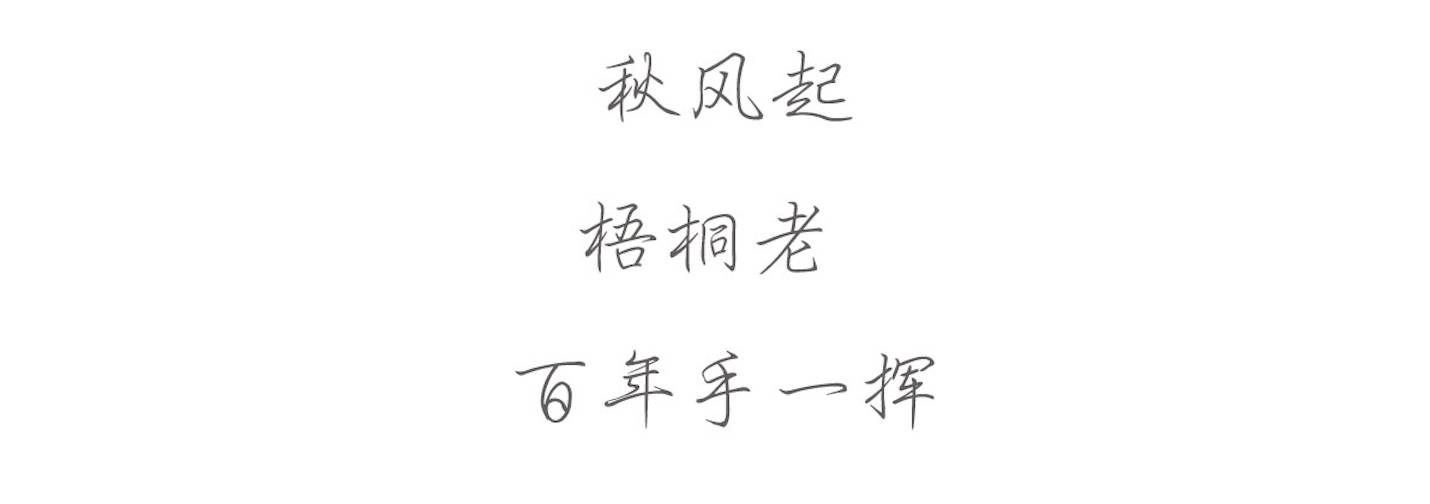 秋风起
梧桐老
百年手一挥